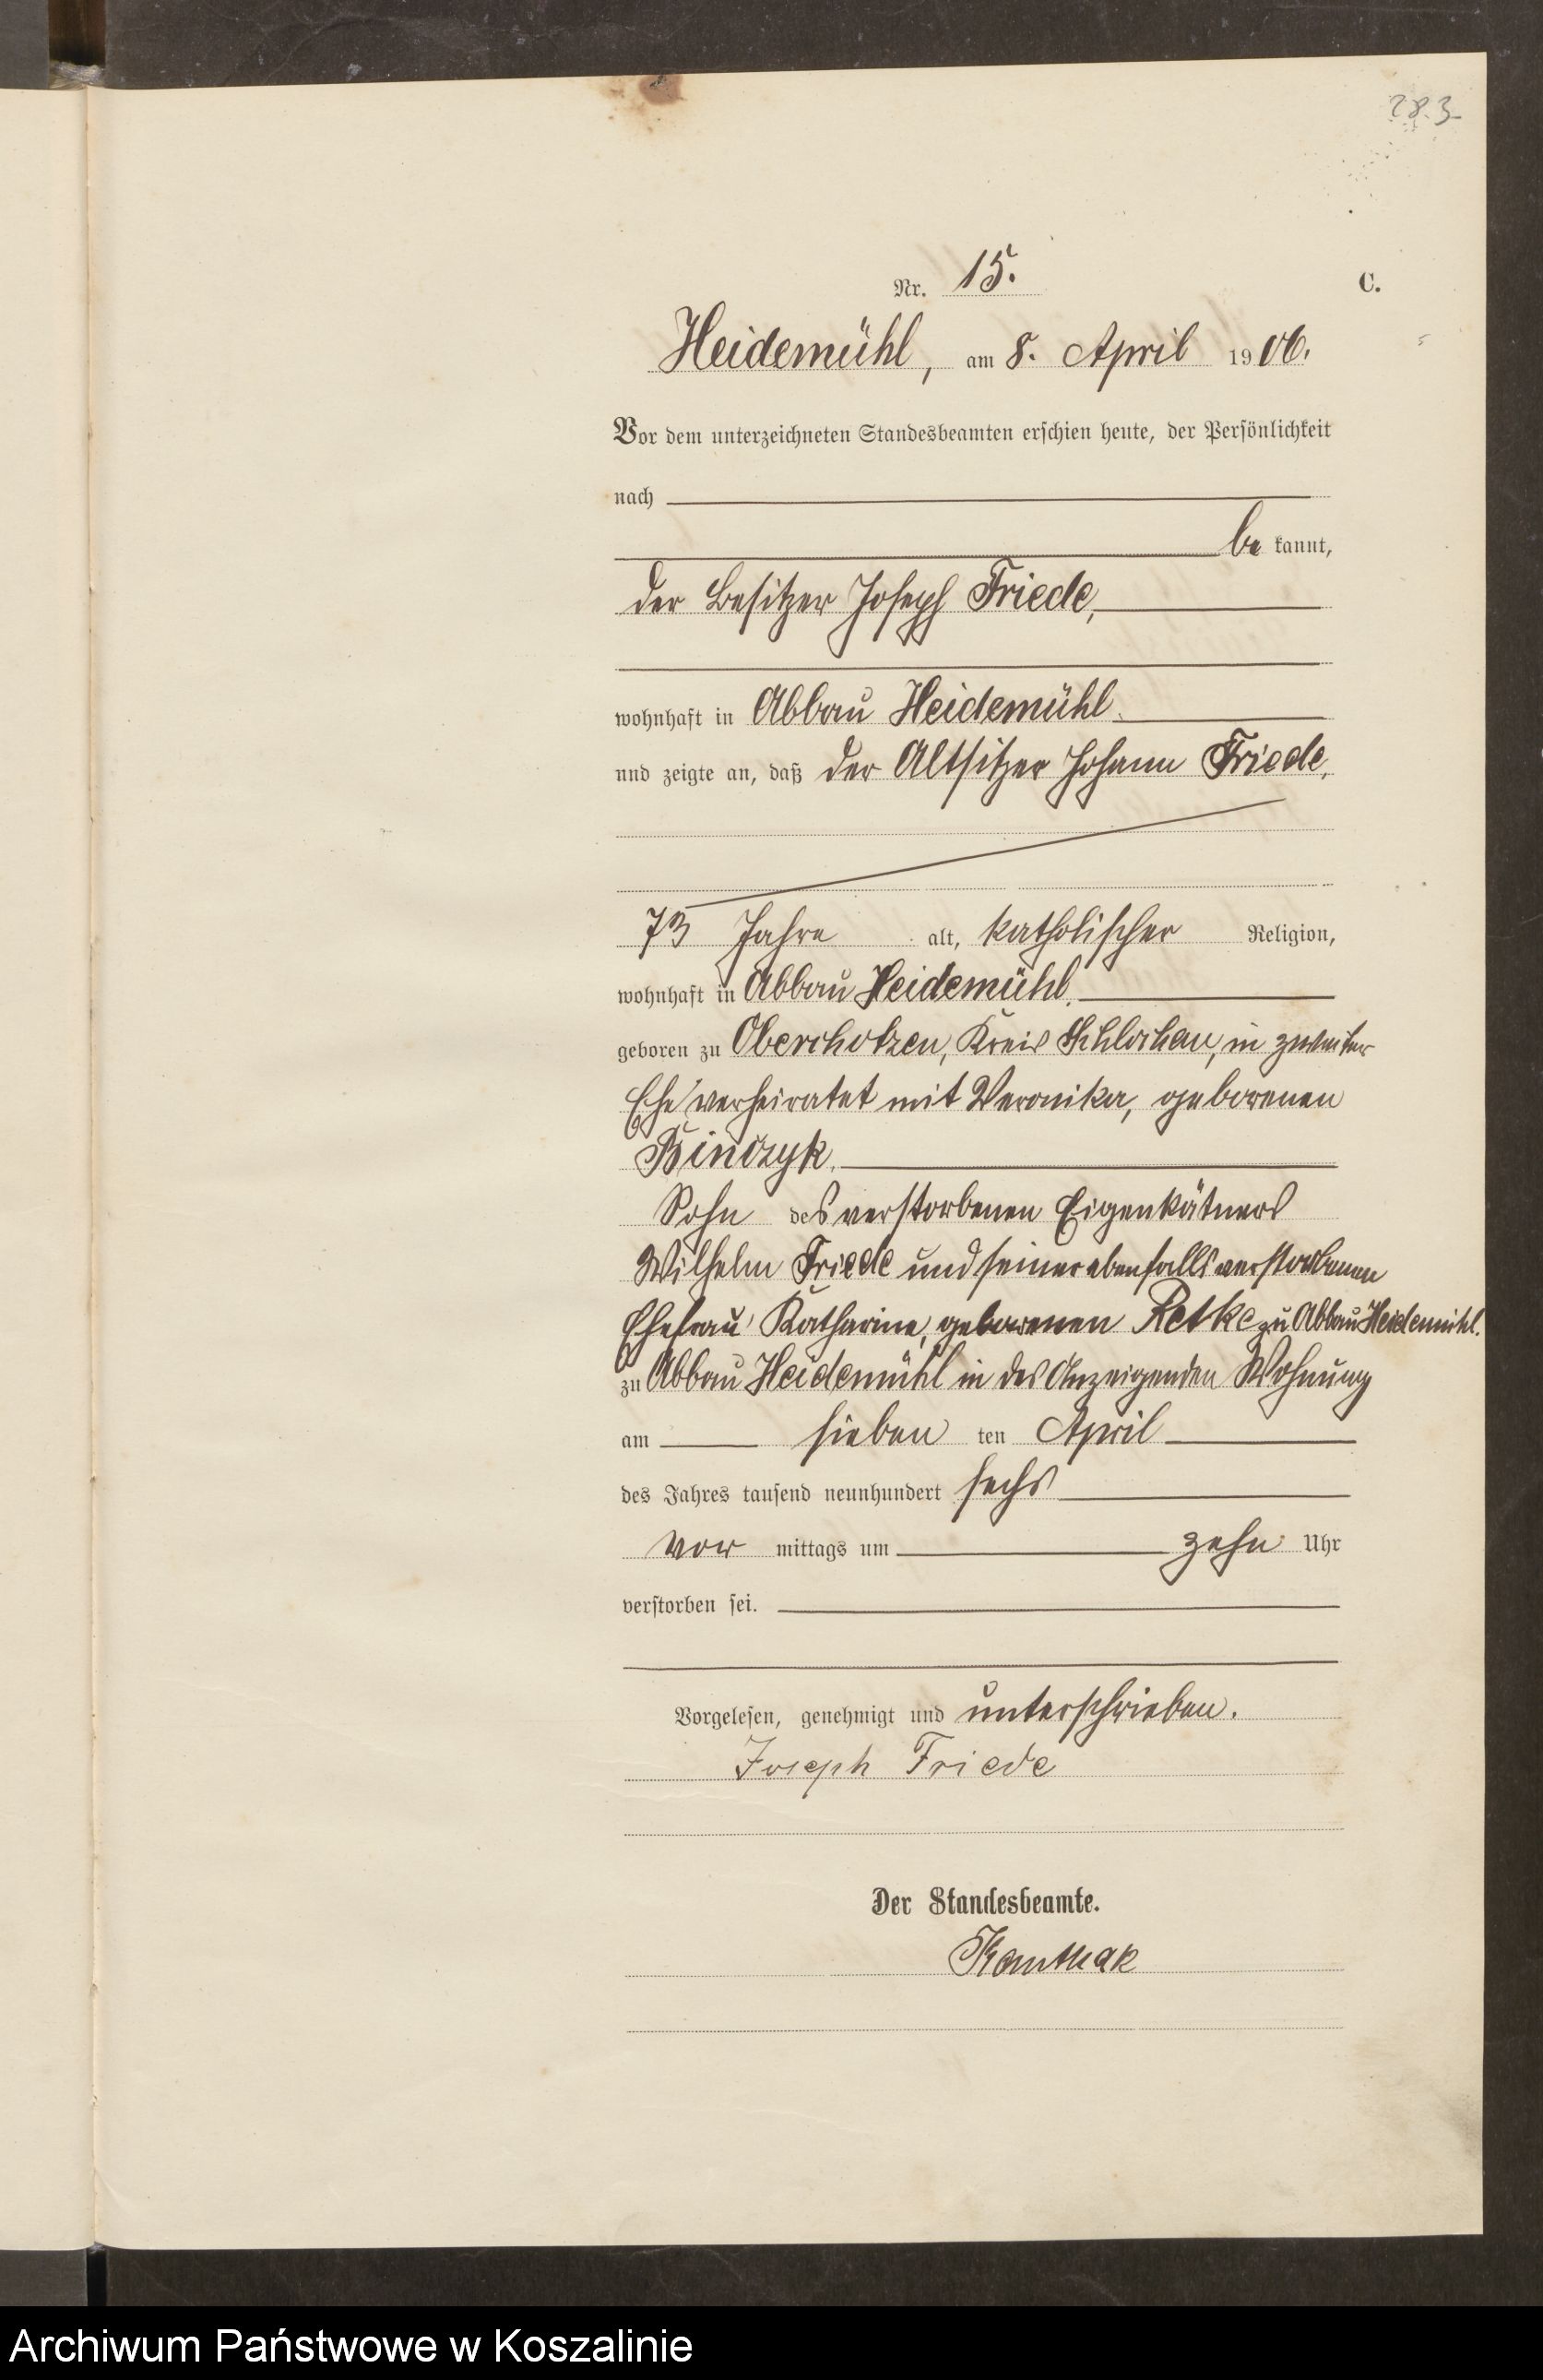 283
Nr. 15. C.
Heidemühl, am 8. April 1906.
Vor dem unterzeichneten Standesbeamten erschien heute, der Persönlichkeit
nach
be kannt,
der Besitzer Joseph Friede,
wohnhaft in Abbau Heidemühl
und zeigte an, daß der Altsitzer Johann Friede,
73 Jahre alt, katholischer Religion,
wohnhaft in Abbau Heidemühl,
geboren zu Oberchotzen, Kreis Schlochau, in zweiter
Ehe verheiratet mit Veronika, geborenen
Binczyk,
Sohn des verstorbenen Eigenkätners
Wilhelm Friede und seiner ebenfalls verstorbenen
Ehefrau Katharine, geborenen Retke zu Abbau Heidemühl.
zu Abbau Heidemühl in des Anzeigenden Wohnung
am sieben ten April
des Jahres tausend neunhundert sechs
vor mittags um zehn Uhr
verstorben sei.
Vorgelesen, genehmigt und unterschrieben.
Joseph Friede
Der Standesbeamte.
Archiwum Państwowe w Koszalinie